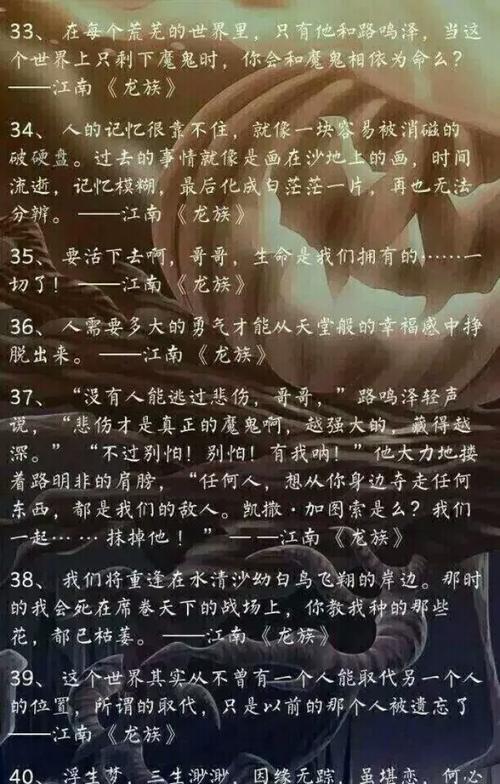 33、 在每个荒芜的世界里，只有他和路鸣泽，当这
个世界上只剩下魔鬼时，你会和魔鬼相依为命么？
——江南《龙族》
34、 人的记忆很靠不住，就像一块容易被消磁的
破硬盘。过去的事情就像是画在沙地上的画，时间
流逝，记忆模糊，最后化成白茫茫一片，再也无法
分辨。 ——江南《龙族》
35、 要活下去啊，哥哥，生命是我们拥有的……一
切了！ ——江南《龙族》
36、 人需要多大的勇气才能从天堂般的幸福感中挣
脱出来。 ——江南《龙族》
37、 “没有人能逃过悲伤，哥哥，”路鸣泽轻声
说，“悲伤才是真正的魔鬼啊，越强大的，藏得越
深。”“不过别怕！别怕！有我呐！”他大力地搂
着路明非的肩膀，“任何人，想从你身边夺走任何
东西，都是我们的敌人。凯撒·加图索是么？我们
一起……抹掉他！” ——江南《龙族》
38、 我们将重逢在水清沙幼白鸟飞翔的岸边。那时
的我会死在席卷天下的战场上，你教我种的那些
花，都已枯萎。 ——江南《龙族》
39、 这个世界其实从不曾有一个人能取代另一个人
的位置，所谓的取代，只是以前的那个人被遗忘了
——江南《龙族》
40、 浮生梦，三生渺渺，因缘无踪，虽堪恋，何必